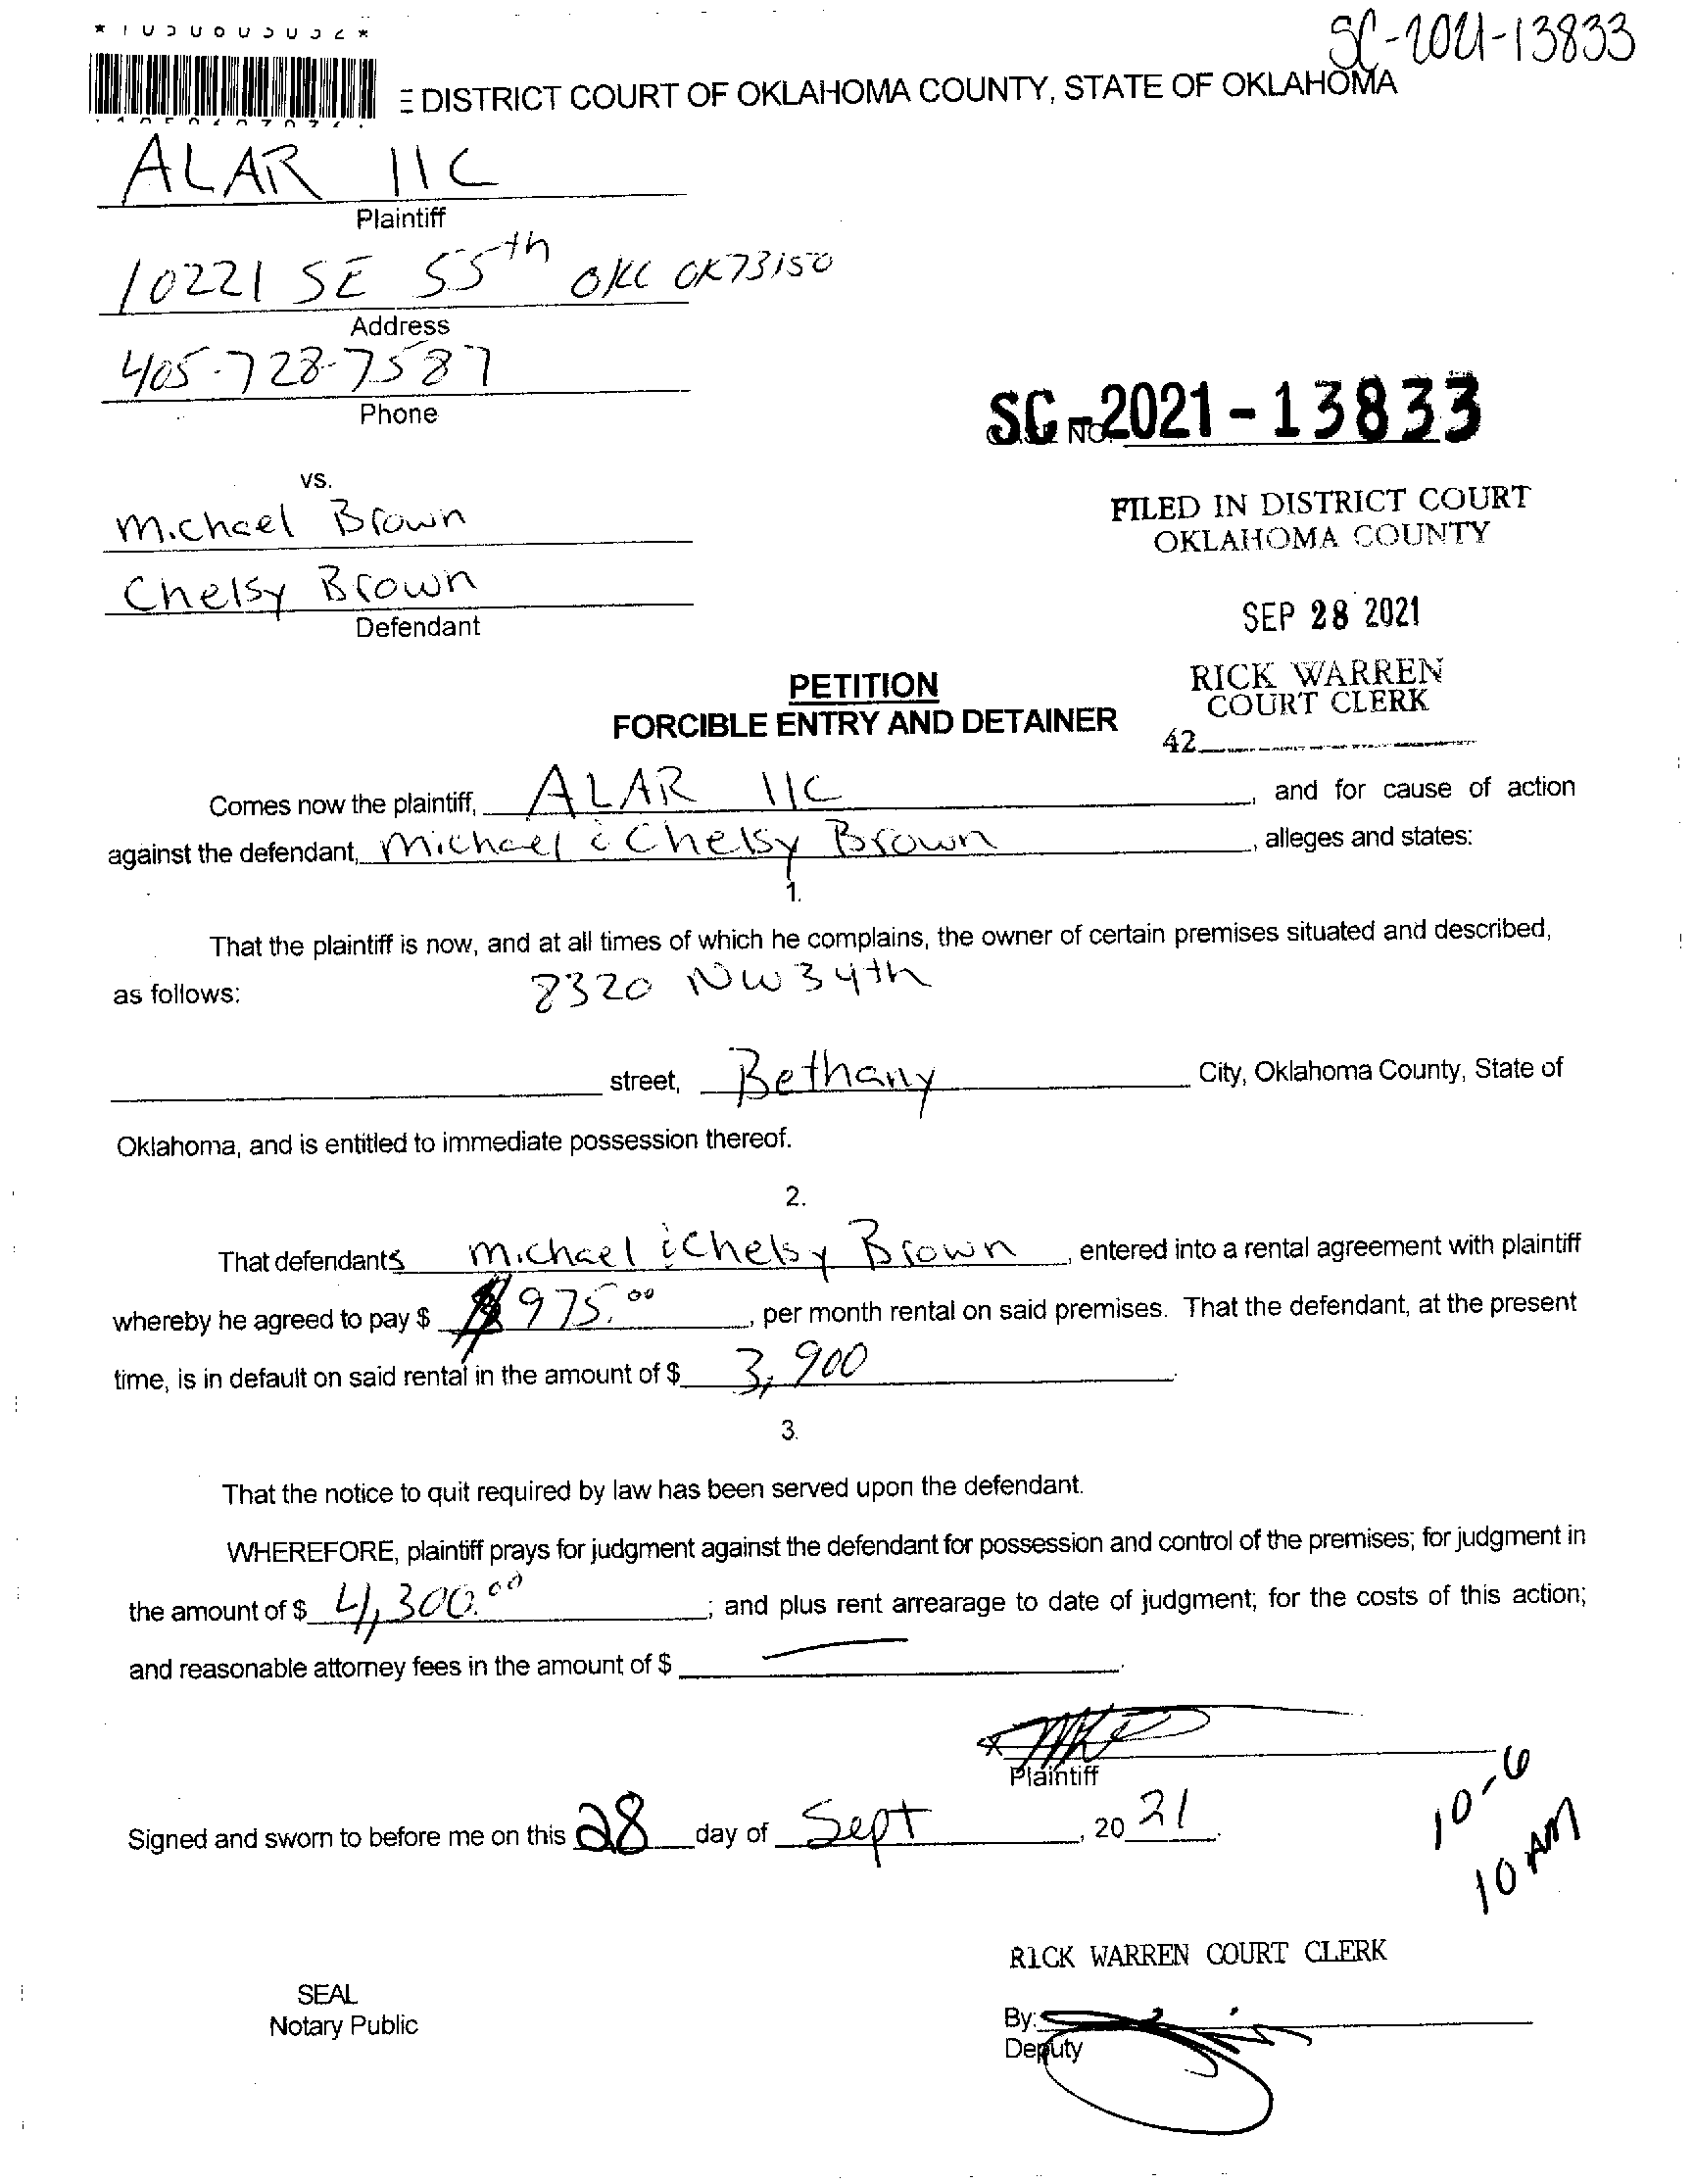 SC-2021-13833
DISTRICT COURT OF OKLAHOMA COUNTY, STATE OF OKLAHOMA
ALAR llC
Plaintiff
10221 SE 55th OKC OK 73150
Address
405-728-7587
Phone
SC-2021-13833
NO.
vs.
Michael Brown
FILED IN DISTRICT COURT
OKLAHOMA COUNTY
Chelsy Brown
Defendant
SEP 28 2021
PETITION
FORCIBLE ENTRY AND DETAINER
RICK WARREN
COURT CLERK
42
Comes now the plaintiff, ALAR llC, and for cause of action
against the defendant, Michael & Chelsy Brown, alleges and states:
1.
That the plaintiff is now, and at all times of which he complains, the owner of certain premises situated and described,
as follows: 8320 NW 34th
street, Bethany City, Oklahoma County, State of
Oklahoma, and is entitled to immediate possession thereof.
2.
That defendants Michael & Chelsy Brown, entered into a rental agreement with plaintiff
whereby he agreed to pay $ 975.00, per month rental on said premises. That the defendant, at the present
time, is in default on said rental in the amount of $ 3,900.
3.
That the notice to quit required by law has been served upon the defendant.
WHEREFORE, plaintiff prays for judgment against the defendant for possession and control of the premises; for judgment in
the amount of $ 4,300.00; and plus rent arrearage to date of judgment; for the costs of this action;
and reasonable attorney fees in the amount of $ —.
x
Plaintiff
Signed and sworn to before me on this 28 day of Sept, 2021.
10-6
10 AM
RICK WARREN COURT CLERK
SEAL
Notary Public
By:
Deputy